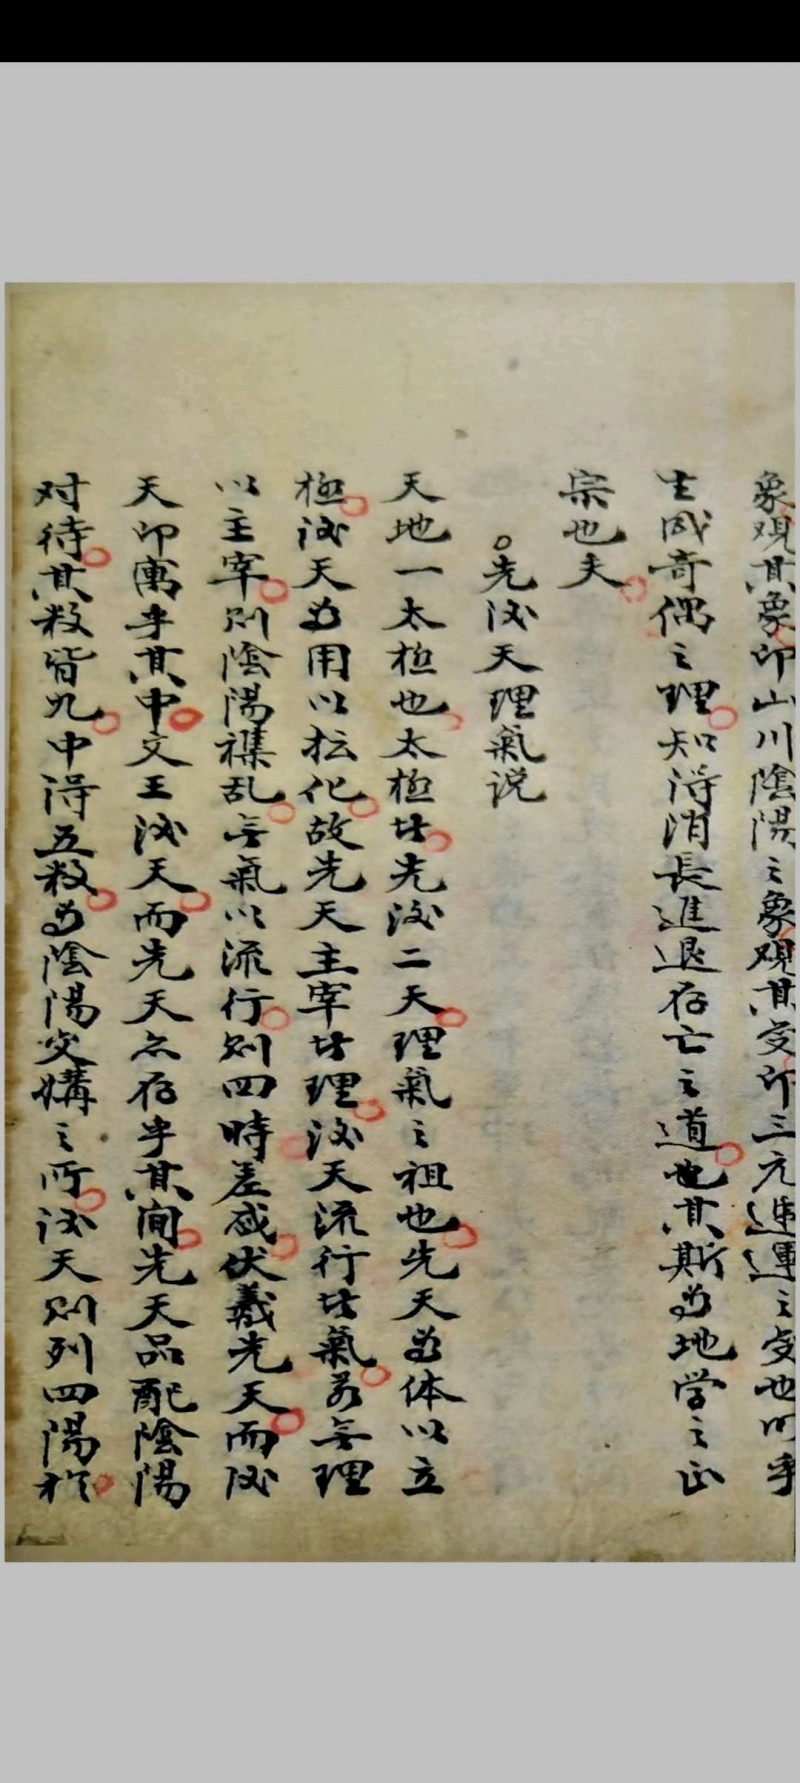 象观其象印山川陰陽之象观其变印三元連運之变也明乎
生成奇偶之理知浔消長進退存亡之道也其斯为地学之正
宗也夫
○先后天理氣说
天地一太极也太极者先後二天理氣之祖也先天为体以立
极後天为用以抎化故先天主宰者理後天流行者氣若无理
以主宰则陰陽襍乱无氣以流行则四時差忒伏羲先天而後
天印寓乎其中文王後天而先天亦存乎其间先天品配陰陽
对待其数皆九中浔五数为陰陽交媾之所後天则列四陽於